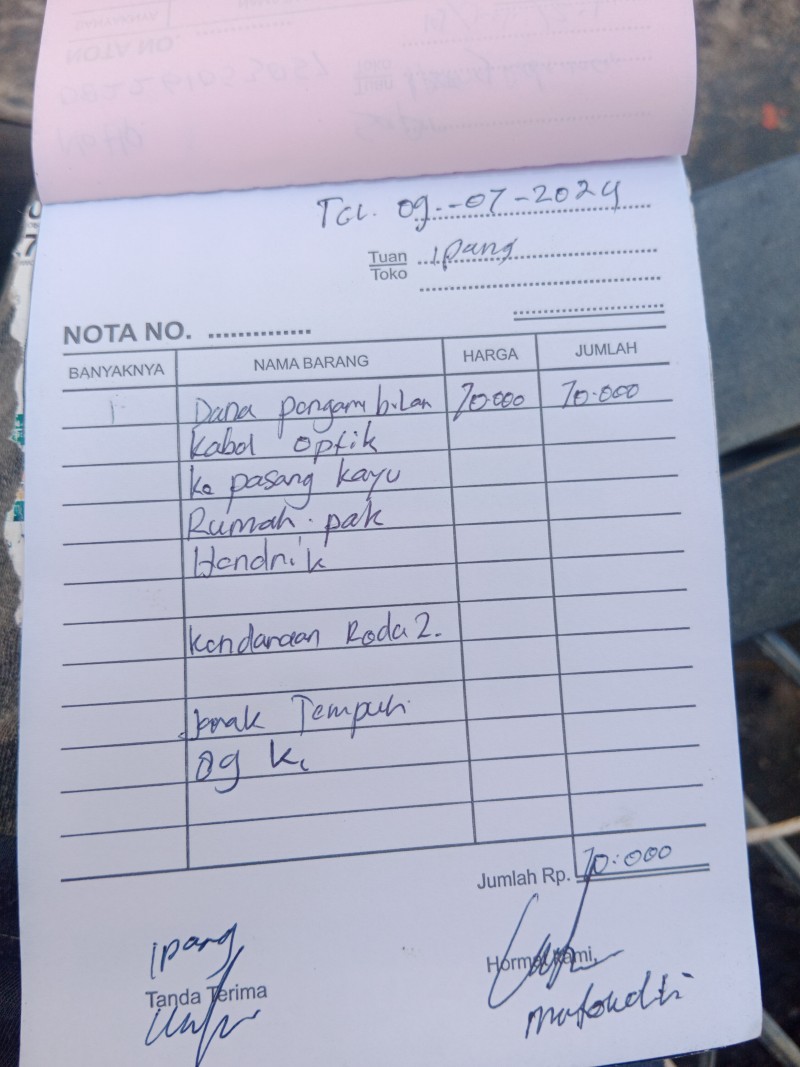 TGL. 09-07-2024
Tuan Ipang
Toko
NOTA NO.
BANYAKNYA NAMA BARANG HARGA JUMLAH
1 Dana pengambilan 70.000 70.000
kabel optik
ke pasang kayu
Rumah pak
Hendrik
Kendaraan Roda 2.
Jarak Tempuh
Jumlah Rp. 70.000
Ipang
Tanda Terima
Hormat kami,